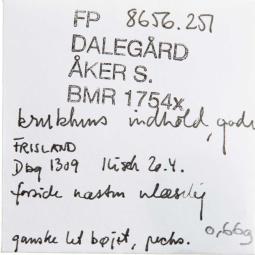 FP 8656.257
DALEGÅRD
ÅKER S.
BMR 1754x
krukhus indhold, gode
FRISLAND
Dbg 1309 Ilisch 20.4.
forside næsten ulæselig
ganske let bøjet, pecks.
0,66g